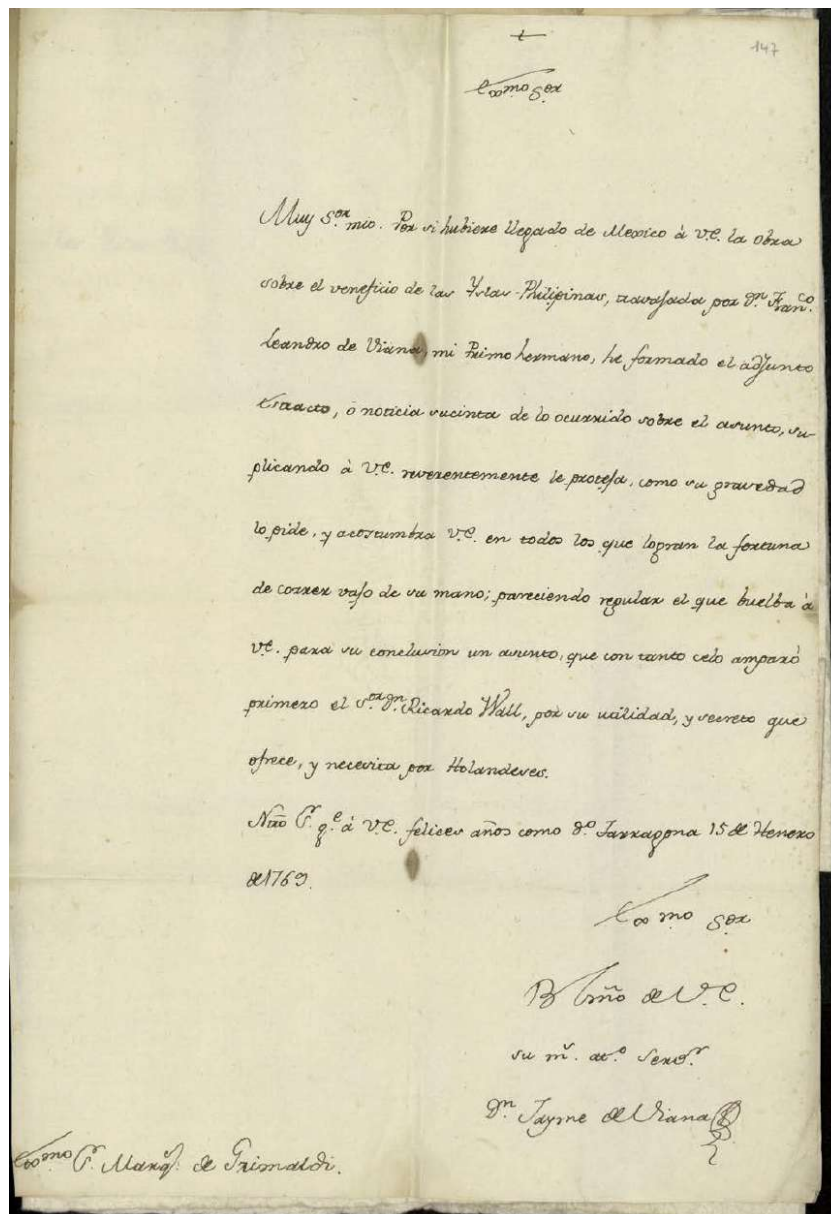 +
147
Exmo Sor
Muy Sor mio. Por si hubiere llegado de Mexico à V.E. la obra
sobre el veneficio de las Yslas Philipinas, travajada por Dn. Franco.
Leandro de Viana, mi Primo hermano, he formado el adjunto
Extracto, ò noticia sucinta de lo ocurrido sobre el asunto, su-
plicando à V.E. reverentemente le proteja, como su gravedad
lo pide, y acostumbra V.E. en todos los que logran la fortuna
de correr vajo de su mano; pareciendo regular el que buelba à
VE. para su conclusion un asunto, que con tanto celo amparò
primero el Sor. Dn. Ricardo Wall, por su utilidad, y secreto que
ofrece, y necesita por Holandeses.
Nro Sr. ge. à V.E. felices años como do. Tarragona 15 de Henero
de 1769.
Exmo Sor
B l mño de V.E.
su mr. ato. Servor.
Dn Jayme de Viana
Exmo Sr. Marqs. de Grimaldi.